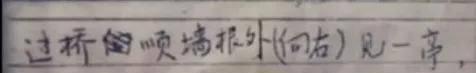 过桥顺墙根外(向右)见一亭,